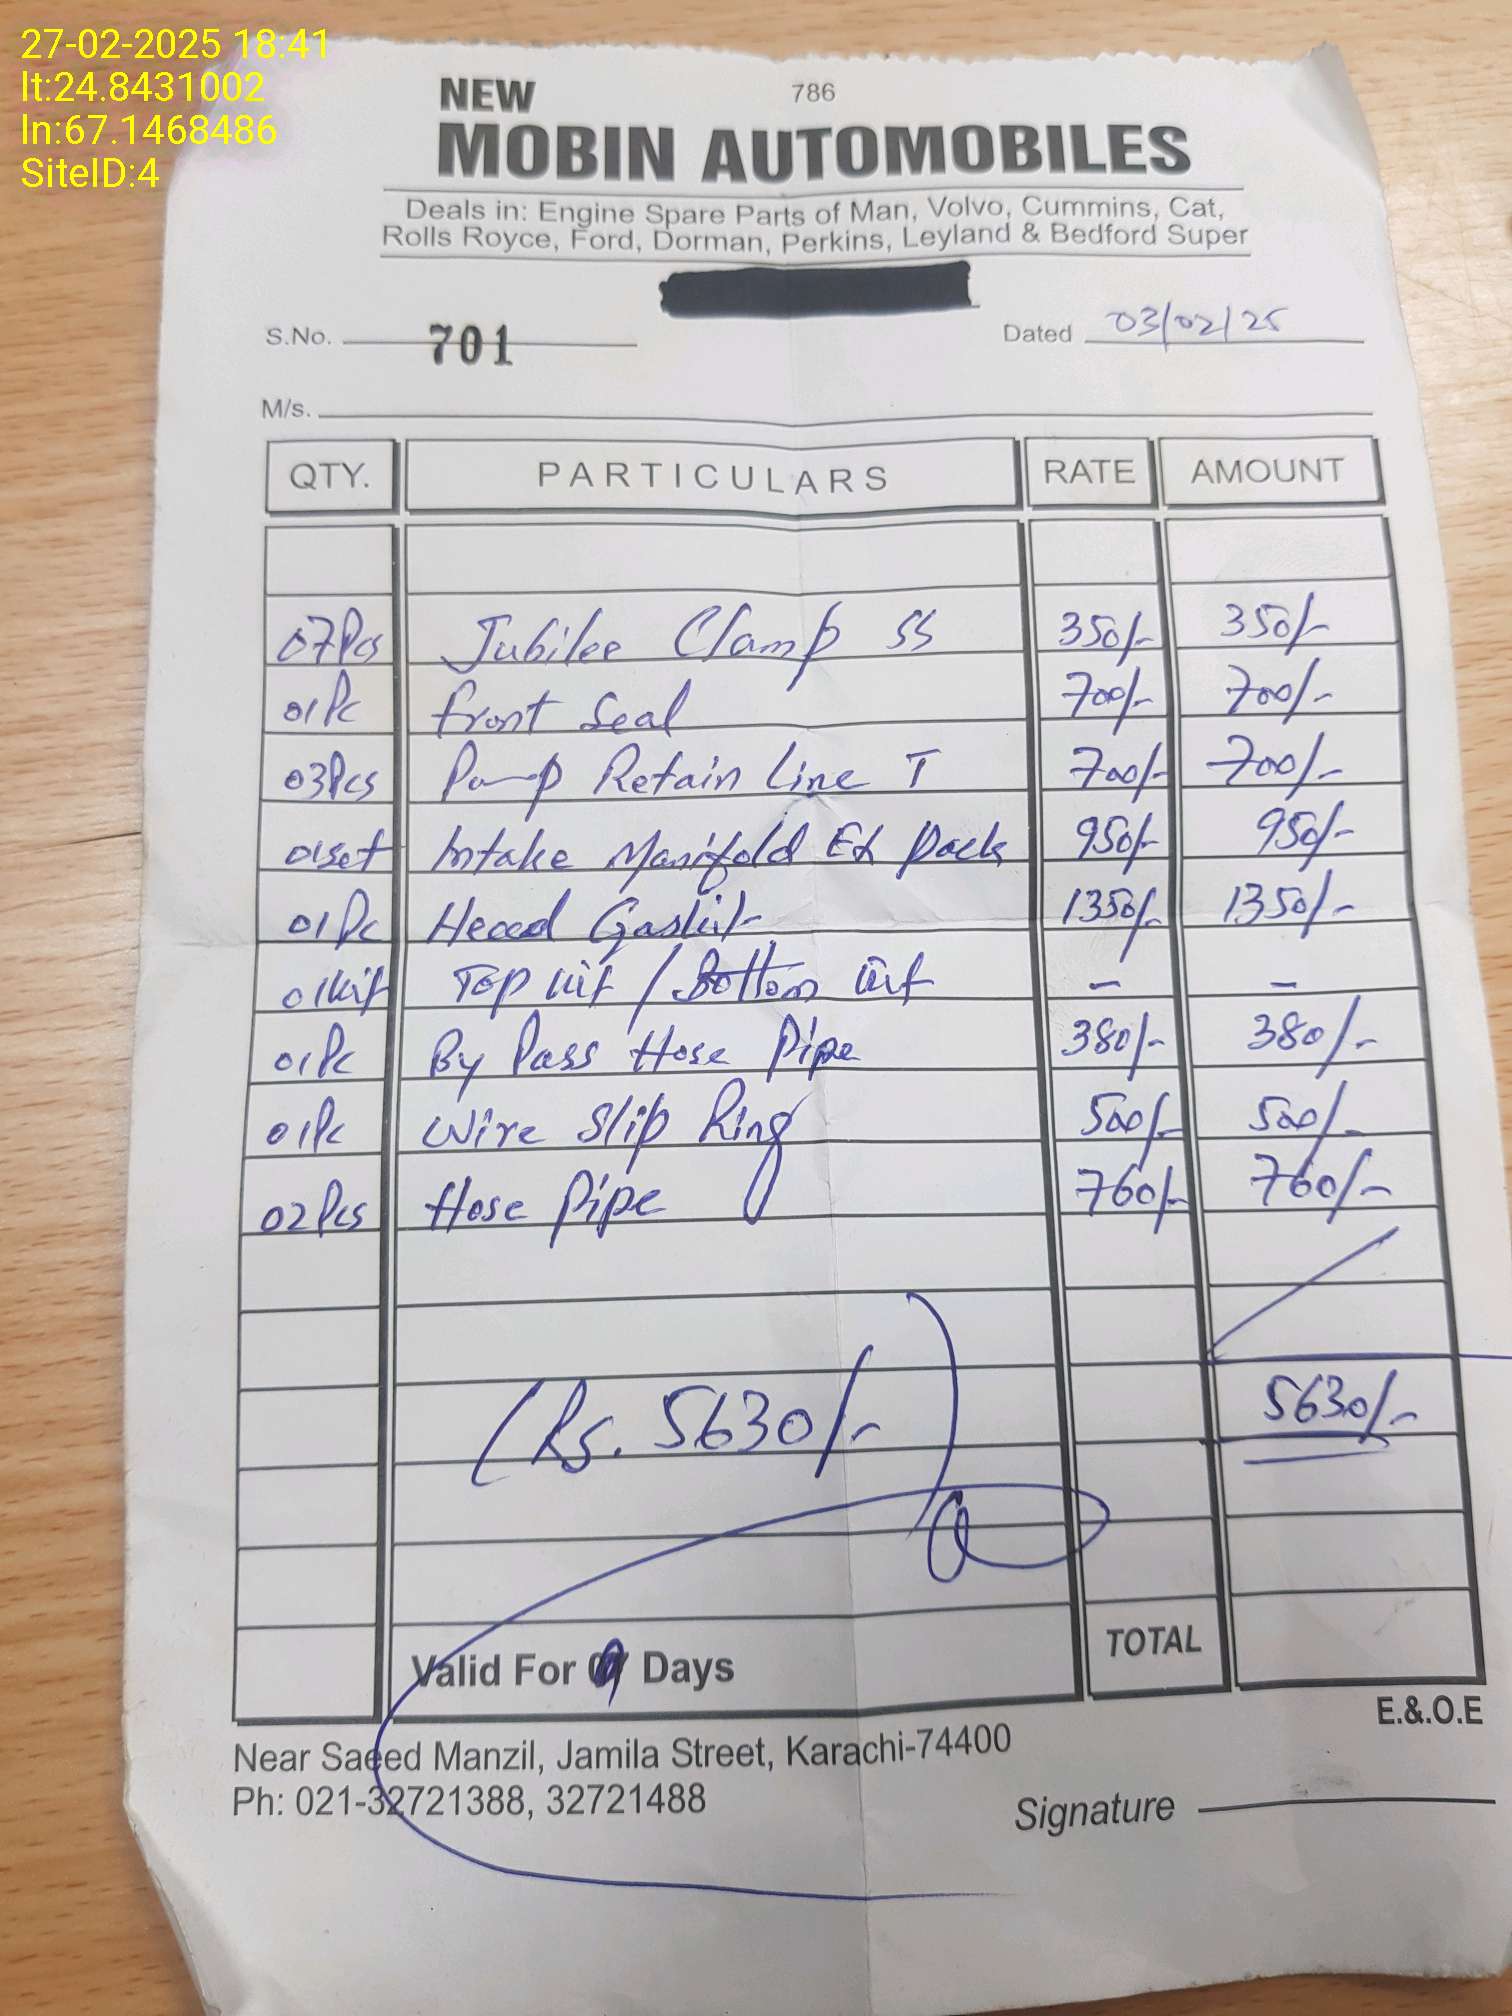 27-02-2025 18:41
lt:24.8431002
ln:67.1468486
SiteID:4
786
NEW
MOBIN AUTOMOBILES
Deals in: Engine Spare Parts of Man, Volvo, Cummins, Cat,
Rolls Royce, Ford, Dorman, Perkins, Leyland & Bedford Super
S.No. 701 Dated 03/02/25
M/s.
QTY. PARTICULARS RATE AMOUNT
07Pcs Jubilee Clamp SS 350/- 350/-
01Pc front Seal 700/- 700/-
03Pcs Pump Retain Line T 700/- 700/-
01set Intake Manifold Ex Pack 950/- 950/-
01Pc Head Gaskit 1350/- 1350/-
01kit Top kit / Bottom kit - -
01Pc By Pass Hose Pipe 380/- 380/-
01Pc Wire Slip Ring 500/- 500/-
02Pcs Hose Pipe 760/- 760/-
(Rs. 5630/-) 5630/-
Valid For Days TOTAL
E.&.O.E
Near Saeed Manzil, Jamila Street, Karachi-74400
Ph: 021-32721388, 32721488
Signature